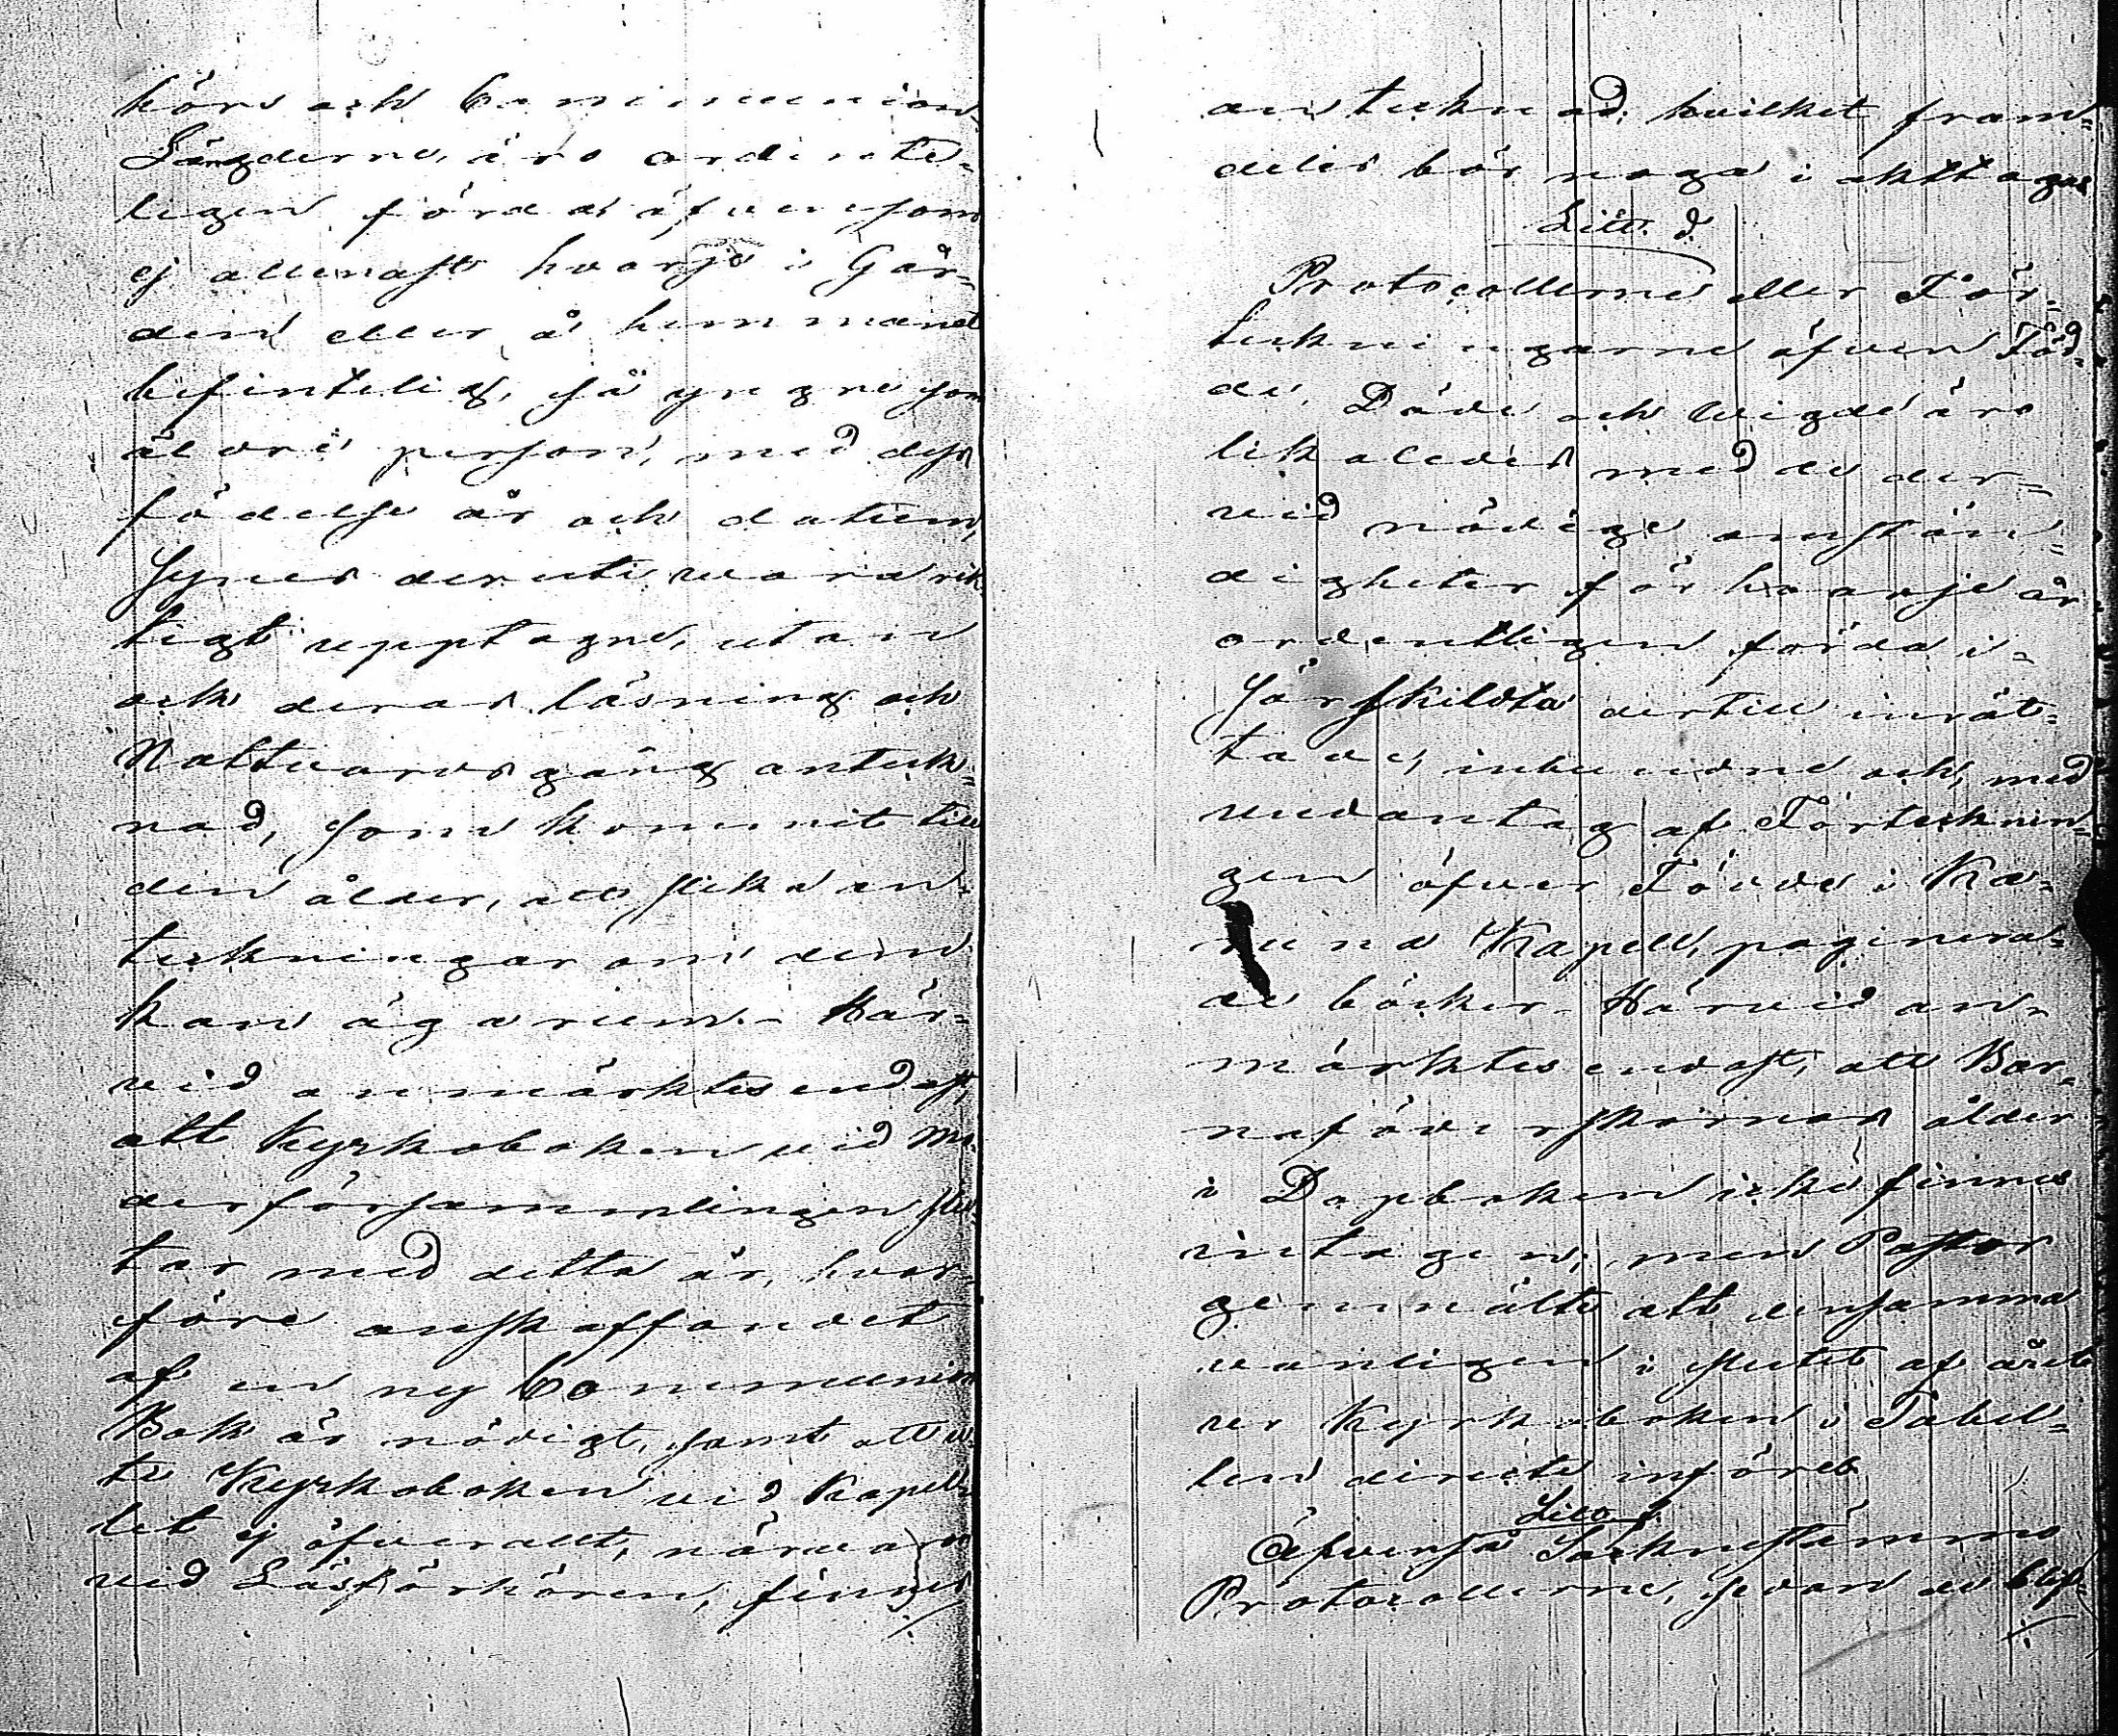 hörs och Communion-
Längderne, äro ordente-
ligen förda äfvensom
ej allenast hvarje i Går-
den eller å hemmanet
befintelig, så yngre som
äldre person, med dess
födelse år och datum,
synes deruti vara rik-
tigt upptagne, utan
och deras läsning och
Nattvardsgång anteck-
nad, som kommit till
den ålder, att slika an-
teckningar om dem
kan äga rum.- Här-
vid anmärktes endast,
att Kyrkoboken vid Mo-
derförsamlingen slu-
tar med detta år, hvar-
före anskaffandet
af en ny Communion
Bok är nödigt, samt att u-
ti Kyrkoboken vid Kapel-
let ej öfverallt, närvaro
vid Läsförhören, finnes
antecknad; hvilket fram-
deles bör noga i akttagas
Litt. d.
Protocollerne eller För-
teckningarne öfver Föd-
de, Döde och Vigde äro
likaledes med de der-
vid nödige omstän-
digheter för hvarje år
ordentligen förda i
särskildta dertill inrät-
tade, inbundne och, med
undantag af Förtecknin-
gen öfver Födde i Ka-
runa Kapell, paginera-
de böcker. Härvid an-
märktes endast, att Bar-
naföderskornas ålder
i Dopboken icke finnes
intagen; men Pastor
genmälte att densamma
vanligen i slutet af året
ur Kyrkoboken i Tabel-
len directe införes
Litt.
Äfvenså Socknestämmo
Protocollerne, sedan de blif-